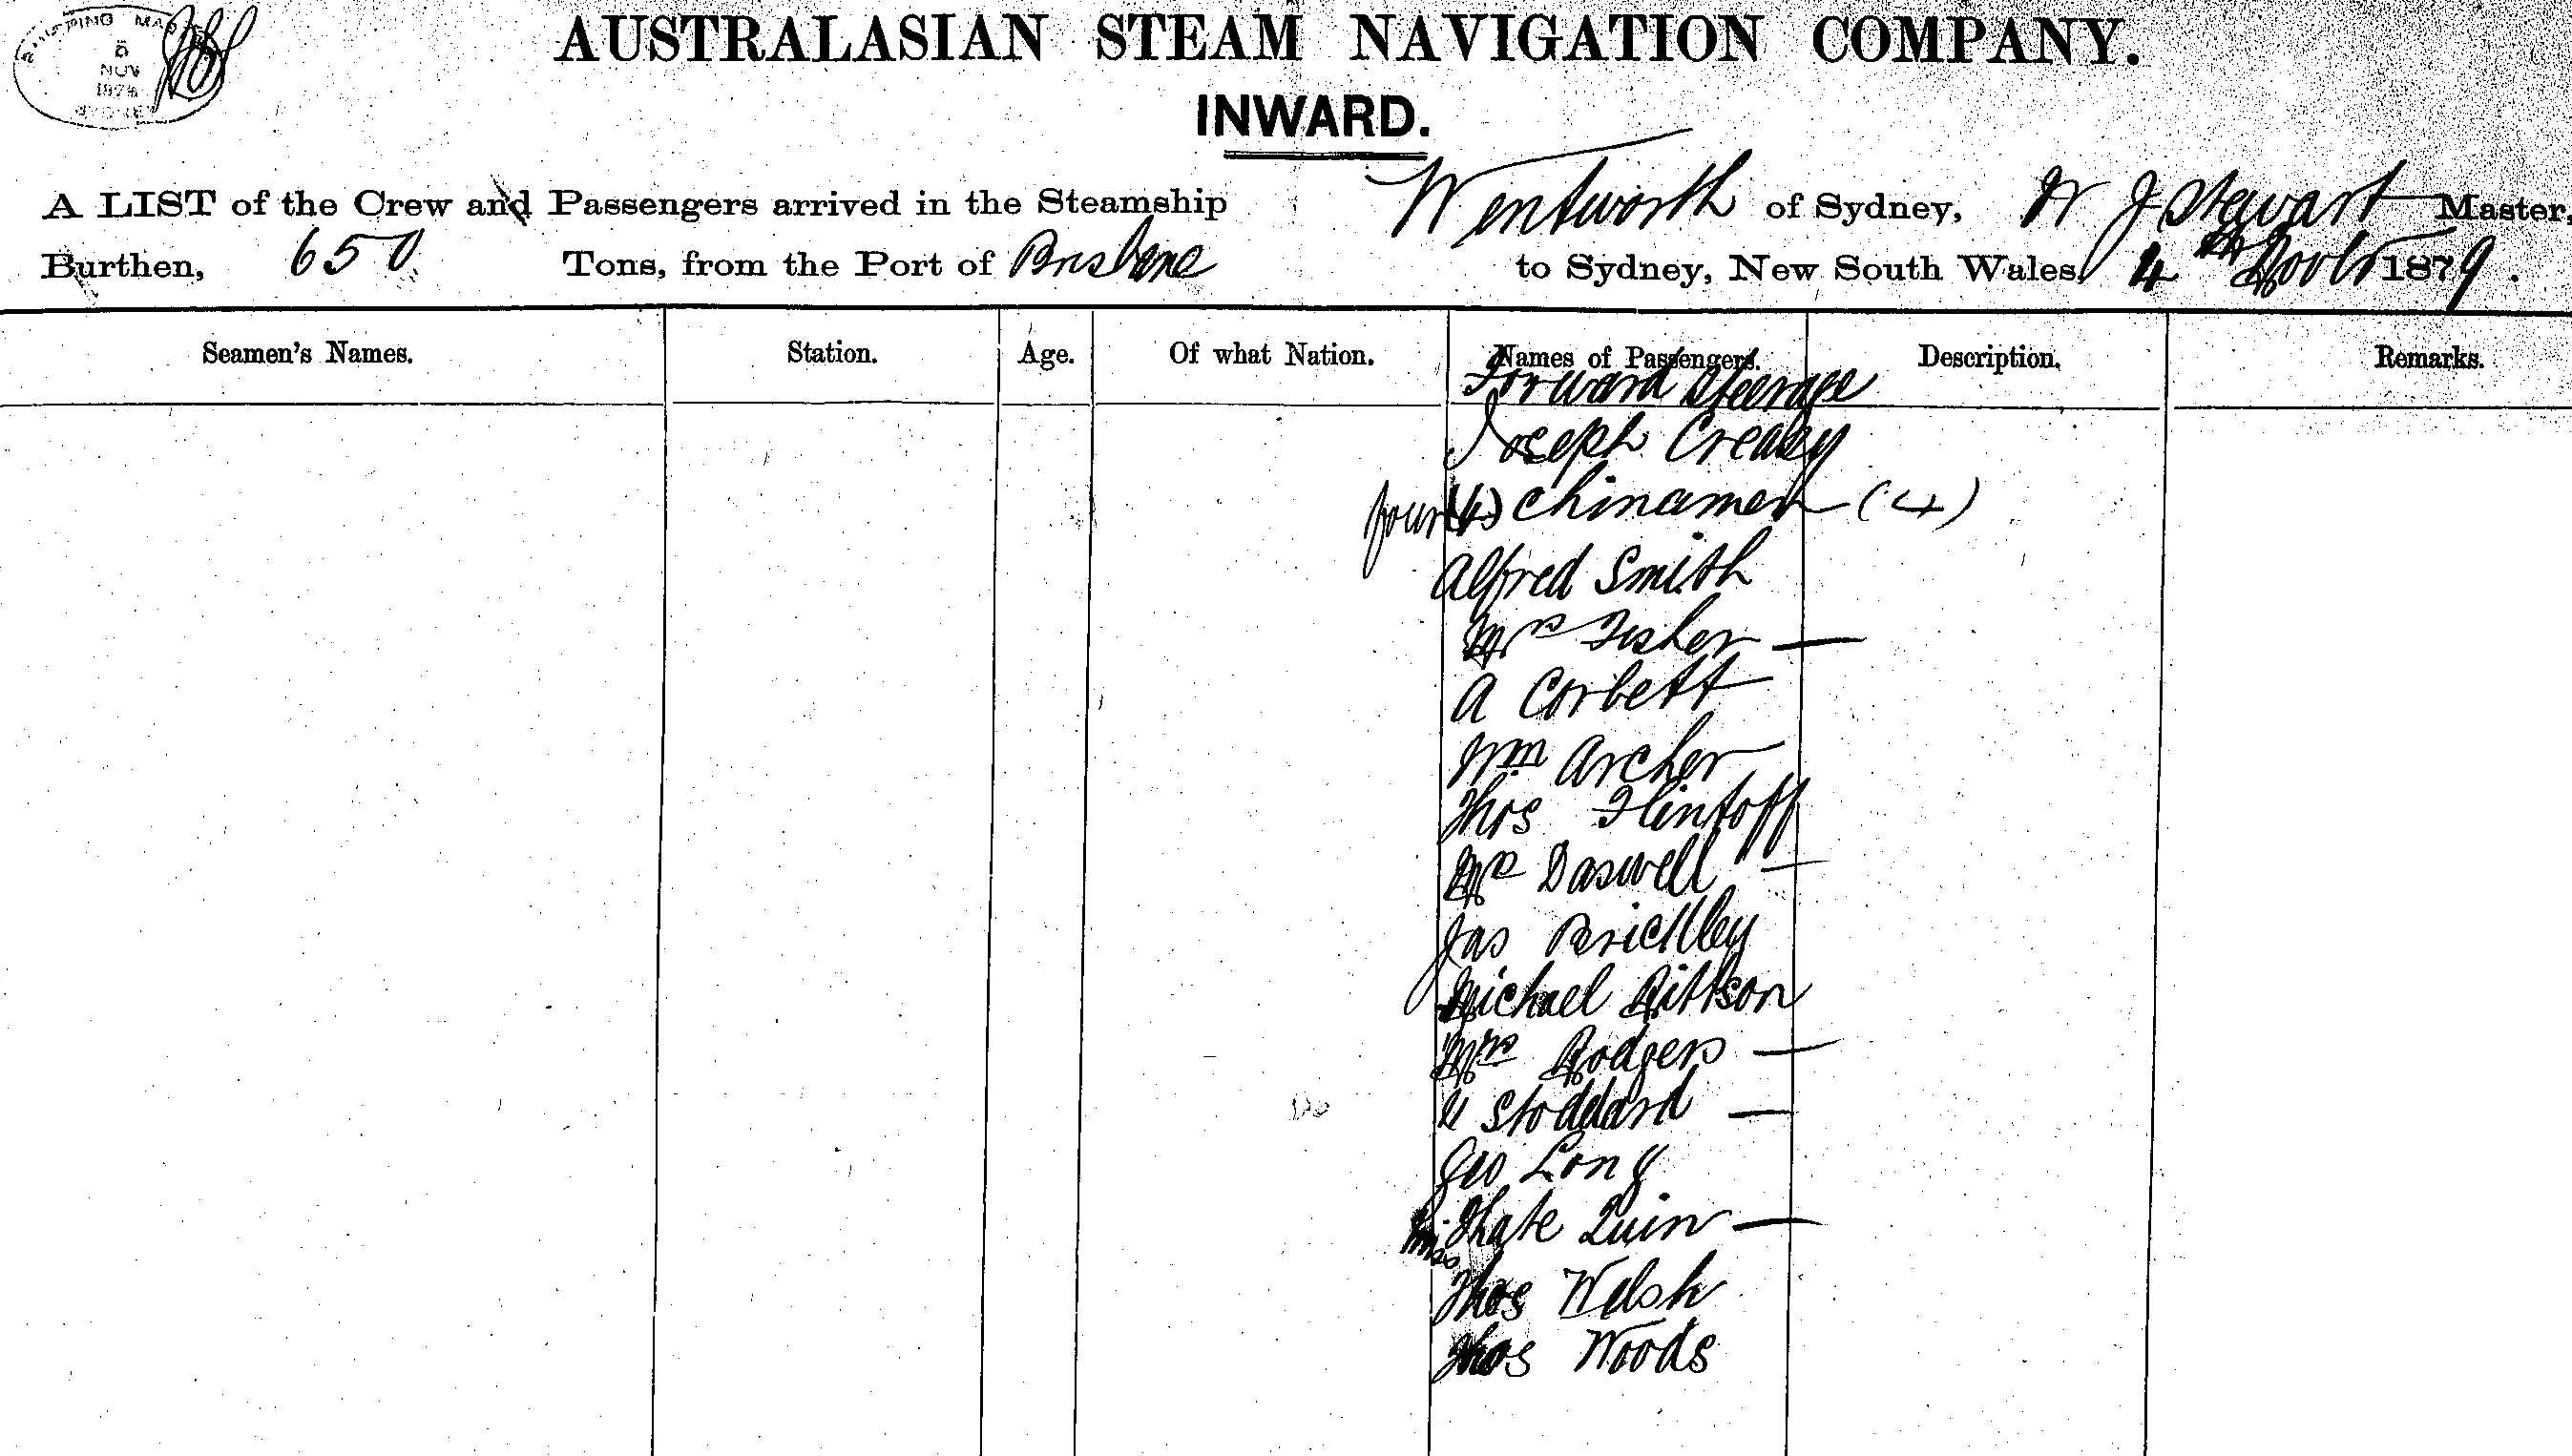 SHIPPING MAS
5
NOV
1879
SYDNEY
AUSTRALASIAN STEAM NAVIGATION COMPANY.
INWARD.
A LIST of the Crew and Passengers arrived in the Steamship Wentworth of Sydney, W J Stewart Master,
Burthen, 650 Tons, from the Port of Brisbane to Sydney, New South Wales, 4th Novbr 1879.
Seamen's Names. Station. Age. Of what Nation. Names of Passengers. Description. Remarks.
Forward Steerage
Joseph Crealey
four (4) Chinamen (4)
Alfred Smith
Mrs Fisher —
A Corbett
Wm Archer
Thos Flintoff
Mrs Daswell —
Jas Brickley
Michael Rittson
Mrs Rodgers —
" Stoddard —
Geo Long
Miss Kate Quin —
Thos Welsh
Thos Woods